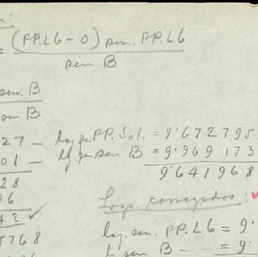 = (PP.L6-0) sen. PP.L6
sen B
sen. B
en B
27 - log sen PP.Sol. = 9.672795
01 - lg sen sen B = 9.969173
28 9.641968
6
42 ✓ Logs. corregidos:
8768 log. sen. PP.L6 = 9.
B = 9.